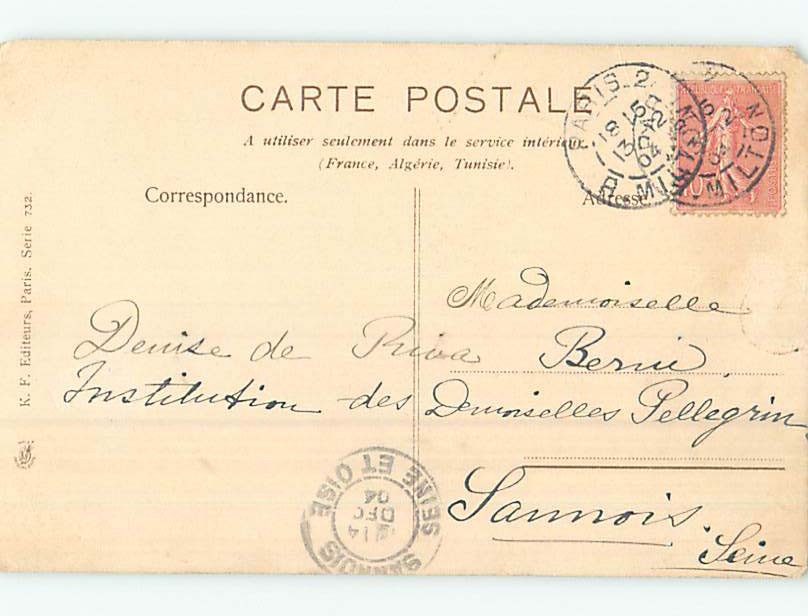 CARTE POSTALE
A utiliser seulement dans le service intérieur.
(France, Algérie, Tunisie).
Correspondance.
Adresse
Mademoiselle
Denise de Riva
Institution des Demoiselles Pellegrin
Sannois.
Seine
K. F. Editeurs, Paris. Serie 732.
PARIS. 2
18 15
13
04
R. MILTON
MILTON
SANNOIS
SEINE ET OISE
14
DEC
04
10